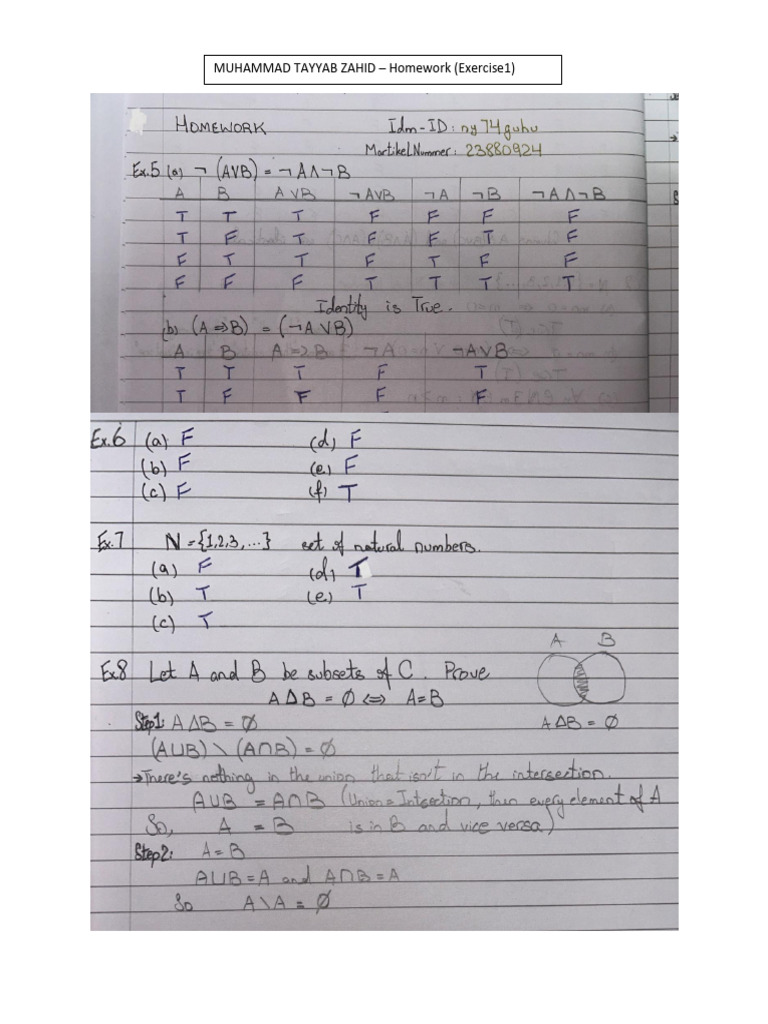 MUHAMMAD TAYYAB ZAHID – Homework (Exercise1)
HOMEWORK Idm-ID: ny74guhu
MartikelNummer: 23880924
Ex.5 (a) ¬ (A∨B) = ¬A∧¬B
A B A∨B ¬A∨B ¬A ¬B ¬A∧¬B
T T T F F F F
T F T F F T F
F T T F T F F
F F F T T T T
Identity is True.
(b) (A⇒B) = (¬A∨B)
A B A⇒B ¬A ¬A∨B
T T T F T
T F F F F
Ex.6 (a) F (d) F
(b) F (e) F
(c) F (f) T
Ex.7 N = {1,2,3, ...} set of natural numbers.
(a) F (d) T
(b) T (e) T
(c) T
A B
Ex8 Let A and B be subsets of C. Prove
A△B = ∅ ⇔ A=B
Step1: A△B = ∅ A△B = ∅
(A∪B) \ (A∩B) = ∅
→There's nothing in the union that isn't in the intersection.
A∪B = A∩B (Union = Intsection, then every element of A
So, A = B is in B and vice versa)
Step2: A=B
A∪B = A and A∩B = A
So A\A = ∅